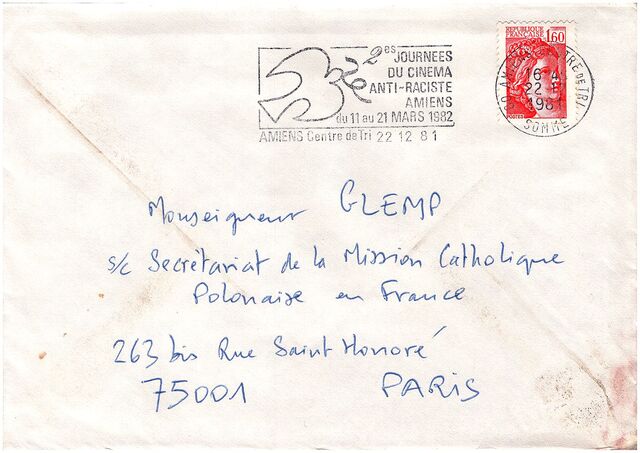 2es JOURNEES
DU CINEMA
ANTI-RACISTE
AMIENS
du 11 au 21 MARS 1982
AMIENS Centre de Tri 22 12 81
REPUBLIQUE
FRANÇAISE 1,60
POSTES
22
1981
SOMME
Monseigneur GLEMP
s/c Secrétariat de la Mission Catholique
Polonaise en France
263 bis Rue Saint Honoré
75001 PARIS